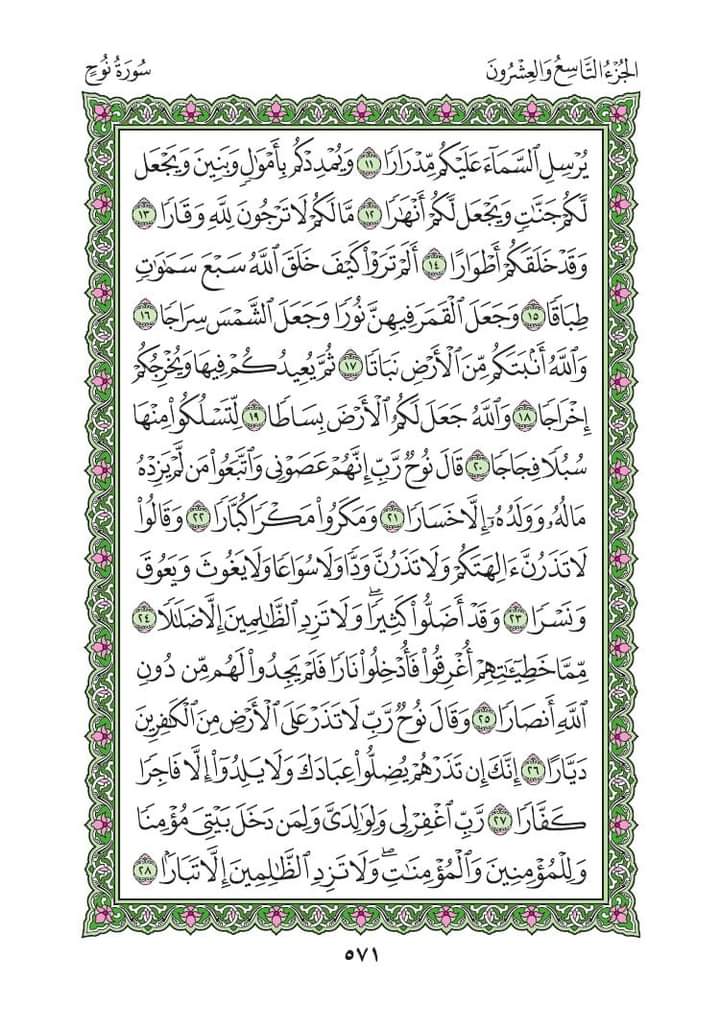 الجُزْءُ التَّاسِعُ وَالعِشْرُونَ
سُورَةُ نُوحٍ
يُرْسِلِ ٱلسَّمَآءَ عَلَيْكُم مِّدْرَارٗا ١١ وَيُمْدِدْكُم بِأَمْوَٰلٖ وَبَنِينَ وَيَجْعَل
لَّكُمْ جَنَّٰتٖ وَيَجْعَل لَّكُمْ أَنْهَٰرٗا ١٢ مَّا لَكُمْ لَا تَرْجُونَ لِلَّهِ وَقَارٗا ١٣
وَقَدْ خَلَقَكُمْ أَطْوَارًا ١٤ أَلَمْ تَرَوْاْ كَيْفَ خَلَقَ ٱللَّهُ سَبْعَ سَمَٰوَٰتٖ
طِبَاقٗا ١٥ وَجَعَلَ ٱلْقَمَرَ فِيهِنَّ نُورٗا وَجَعَلَ ٱلشَّمْسَ سِرَاجٗا ١٦
وَٱللَّهُ أَنۢبَتَكُم مِّنَ ٱلْأَرْضِ نَبَاتٗا ١٧ ثُمَّ يُعِيدُكُمْ فِيهَا وَيُخْرِجُكُمْ
إِخْرَاجٗا ١٨ وَٱللَّهُ جَعَلَ لَكُمُ ٱلْأَرْضَ بِسَاطٗا ١٩ لِّتَسْلُكُواْ مِنْهَا
سُبُلٗا فِجَاجٗا ٢٠ قَالَ نُوحٞ رَّبِّ إِنَّهُمْ عَصَوْنِي وَٱتَّبَعُواْ مَن لَّمْ يَزِدْهُ
مَالُهُۥ وَوَلَدُهُۥٓ إِلَّا خَسَارٗا ٢١ وَمَكَرُواْ مَكْرٗا كُبَّارٗا ٢٢ وَقَالُواْ
لَا تَذَرُنَّ ءَالِهَتَكُمْ وَلَا تَذَرُنَّ وَدّٗا وَلَا سُوَاعٗا وَلَا يَغُوثَ وَيَعُوقَ
وَنَسْرٗا ٢٣ وَقَدْ أَضَلُّواْ كَثِيرٗاۖ وَلَا تَزِدِ ٱلظَّٰلِمِينَ إِلَّا ضَلَٰلٗا ٢٤
مِّمَّا خَطِيٓـَٰٔتِهِمْ أُغْرِقُواْ فَأُدْخِلُواْ نَارٗا فَلَمْ يَجِدُواْ لَهُم مِّن دُونِ
ٱللَّهِ أَنصَارٗا ٢٥ وَقَالَ نُوحٞ رَّبِّ لَا تَذَرْ عَلَى ٱلْأَرْضِ مِنَ ٱلْكَٰفِرِينَ
دَيَّارًا ٢٦ إِنَّكَ إِن تَذَرْهُمْ يُضِلُّواْ عِبَادَكَ وَلَا يَلِدُوٓاْ إِلَّا فَاجِرٗا
كَفَّارٗا ٢٧ رَّبِّ ٱغْفِرْ لِي وَلِوَٰلِدَيَّ وَلِمَن دَخَلَ بَيْتِيَ مُؤْمِنٗا
وَلِلْمُؤْمِنِينَ وَٱلْمُؤْمِنَٰتِۖ وَلَا تَزِدِ ٱلظَّٰلِمِينَ إِلَّا تَبَارَۢا ٢٨
٥٧١